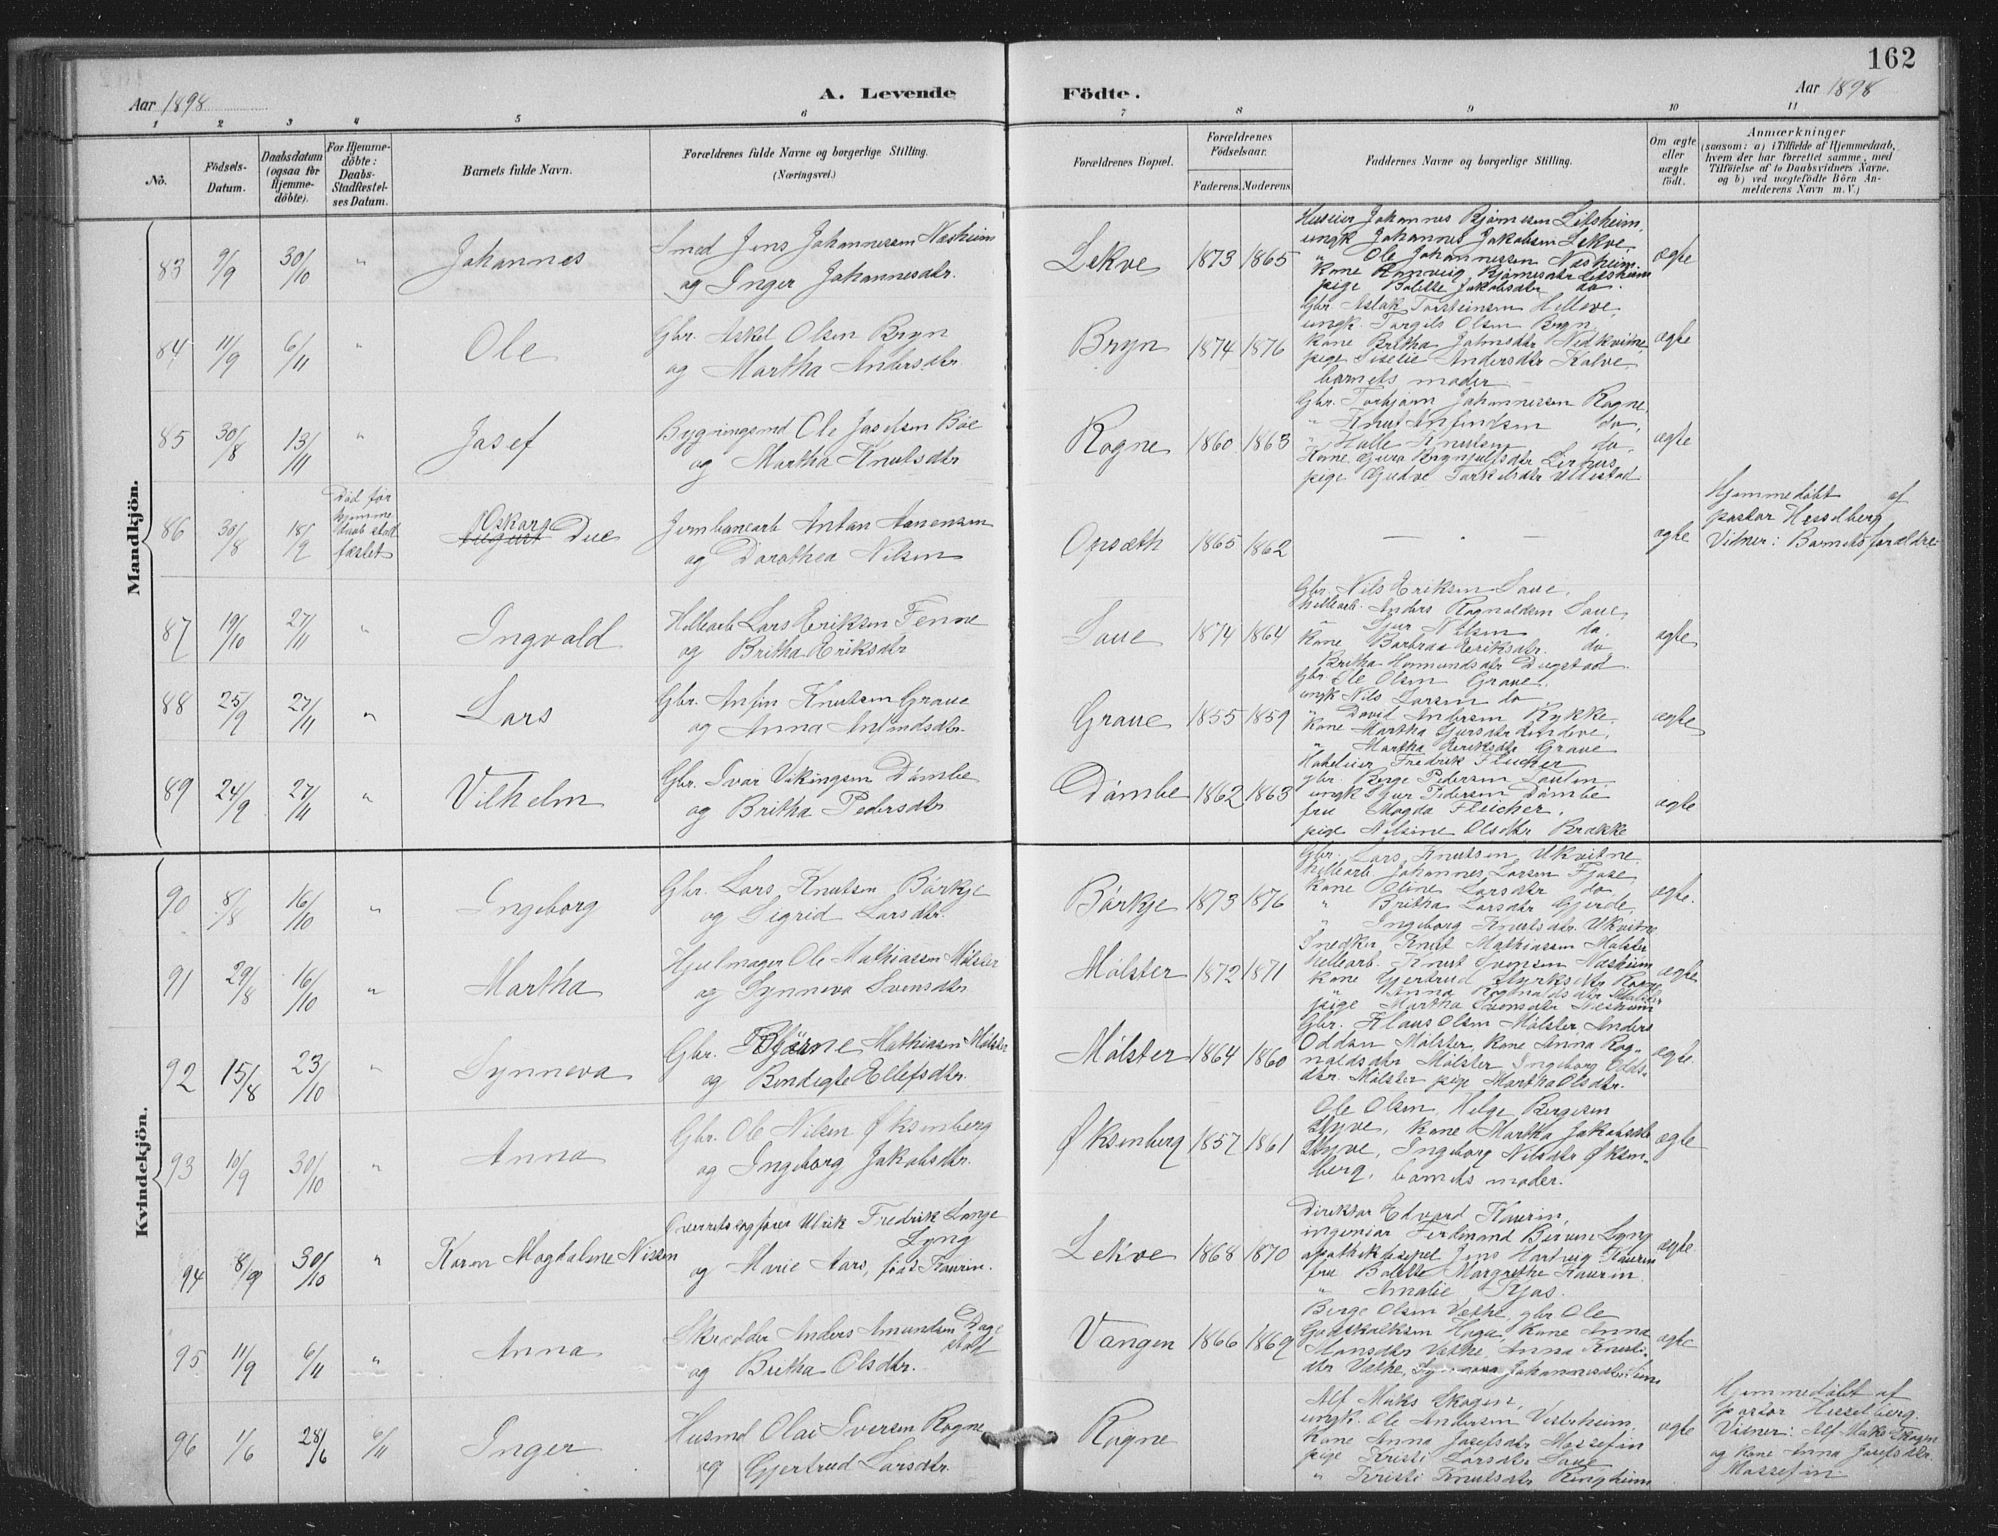 162
Aar 1898
A. Levende
Födte.
Aar 1898
1 2 3 4 5 6 7 8 9 10 11
No.
Födsels-
Datum.
Daabsdatum
(ogsaa for
Hjemme-
döbte).
For Hjemme-
döbte:
Daabs-
Stadfæstel-
ses Datum.
Barnets fulde Navn.
Forældrenes fulde Navne og borgerlige Stilling.
(Næringsvei.)
Forældrenes Bopæl.
Forældrenes
Födselsaar.
Faderens. Moderens.
Faddernes Navne og borgerlige Stilling.
Om ægte
eller
uægte
födt.
Anmærkninger
(saasom: a) i Tilfælde af Hjemmedaab,
hvem der har forrettet samme, med
Tilföielse af to Daabsvidners Navne,
og b) ved uægtefödte Börn An-
melderens Navn m. V.)
Mandkjön.
83 9/9 30/10 " Johannes
Smed Jens Johannessen Næsheim
og Inger Johannesdtr.
Lekve 1873 1865
Huseier Johannes Bjørnesen Litsheim,
ungk Johannes Jakobsen Lekve,
" Ole Johannessen Næsheim.
Kone Ranveig Bjørnesdtr Litsheim
pige Bolette Jakobsdtr do.
ægte
84 11/9 6/11 " Ole
Gbr. Askel Olsen Bryn
og Martha Andersdtr
Bryn 1874 1876
Gbr. Aslak Torsteinsen Helleve
ungk. Torgils Olsen Bryn,
kone Britha Johnsdtr Nedkvitne,
pige Siselie Andersdtr Kolve
barnets moder
ægte
85 30/8 13/11 " Josef
Bygningsmd Ole Josefsen Böe
og Martha Knutsdtr
Rogne 1860 1863
Gbr. Torbjørn Johannessen Rogne,
" Knut Anfindsen do,
" Halle Knutsen do,
Kone Gura Brynjulfsdtr Lirhus,
pige Gjertve Torkelsdtr Ullestad
ægte
86 30/8 18/9
Död før
hjemme
daab stad
fæstet
Oskar
August Due
Jernbanearb Anton Aanensen
og Dorothea Nilsen
Opsæth 1865 1862
— " —
ægte
Hjemmedöbt af
pastor Hesselberg
Vidner: Barnets forældre
87 19/10 27/11 " Ingvald
Hellearb Lars Eriksen Fenne
og Britha Eriksdtr
Saue 1874 1864
Gbr. Nils Eriksen Saue,
hellearb. Anders Rognaldsen Saue,
" Sjur Nilsen do.
kone Barbraa Eriksdtr. do,
" Britha Hermundsdtr Dugstad.
ægte
88 25/9 27/11 " Lars
Gbr. Anfin Knutsen Graue
og Anna Anfindsdtr.
Graue 1855 1859
Gbr. Ole Olsen Graue,
ungk Nils Larsen do
" David Andersen Rykke,
kone Martha Sjursdtr Lindeve,
" Martha Eriksdtr Graue
ægte
89 24/9 27/11 " Vilhelm
Gbr. Ivar Vikingsen Dömbe
og Britha Pedersdtr
Dömbe 1862 1863
Hoteleier Fredrik Fleicher
gbr. Berge Pedersen Laulin
ungk Sjur Pedersen Dömbe
fru Magda Fleicher,
pige Nilsine Olsdtr Brække
ægte
Kvindekjön.
90 8/8 16/10 " Ingeborg
Gbr. Lars Knutsen Börkje
og Sigrid Larsdtr.
Börkje 1873 1876
Gbr. Lars Knutsen Ukvitne,
hellearb Johannes Larsen Fjose,
kone Oline Larsdtr do
" Britha Larsdtr Gjerde,
" Ingeborg Knutsdtr. Ukvitne
ægte.
91 29/8 16/10 " Martha
Hjulmager Ole Mathiassen Mölster
og Synneva Svensdtr
Mölster 1872 1871
Snedker Knut Mathiassen Mölster
hellearb. Knut Svensen Næsheim
kone Gjertrud Styrksdtr Rogne
" Anna Rognaldsdtr Mölster
pige Martha Svensdtr Næsheim
ægte
92 15/8 23/10 " Synneva
Gbr. Bjørne Mathiassen Mölster
og Bendigte Ellefsdtr.
Mölster 1864 1860
Gbr. Klaus Olsen Mölster, Anders
Oddsen Mölster, kone Anna Rog-
naldsdtr Mölster Ingeborg Odds-
dtr. Mölster pige Martha Olsdtr.
ægte.
93 10/9 30/10 " Anna
Gbr. Ole Nilsen Øksenberg
og Ingeborg Jakobsdtr.
Øksenberg 1857 1861
Ole Olsen, Helge Bergesen
Styve, kone Martha Jakobsdtr
Styve, Ingeborg Nilsdtr Øksen-
berg, barnets moder.
ægte
94 8/9 30/10 " Karen Magdalene Nissen
Overretssagfører Ulrik Fredrik Lange
Lyng
og Marie Aars, født Kaurin.
Lekve 1868 1870
Direktør Edvard Kaurin,
ingeniør Ferdinand Berven Lyng
apothekdisipel Jens Hartvig Kaurin
fru Bolette Margrethe Kaurin.
" Amalie Kjos.
ægte
95 11/9 6/11 " Anna
Skredder Anders Amundsen Dag-
stad
og Britha Olsdtr.
Vangen 1866 1869
Berge Olsen Væthe, gbr. Ole
Godskalksen Haga, kone Anna
Monsdtr Væthe, Anna Knuts-
dtr Væthe, Johannesdtr
ægte
96 1/6 28/6 6/11 Inger
Husmd Olai Iversen Rogne
og Gjertrud Larsdtr.
Rogne
Alf Maks Skogen,
ungk. Ole Andersen Vestrheim,
kone Anna Josefsdtr Massefin
pige Kristi Larsdtr Saue
" Kristi Knutsdtr Ringheim
ægte
Hjemmedöbt af
pastor Hesselberg.
Vidner: Alf Maks Skogen
og kone Anna Josefsdtr.
Massefin